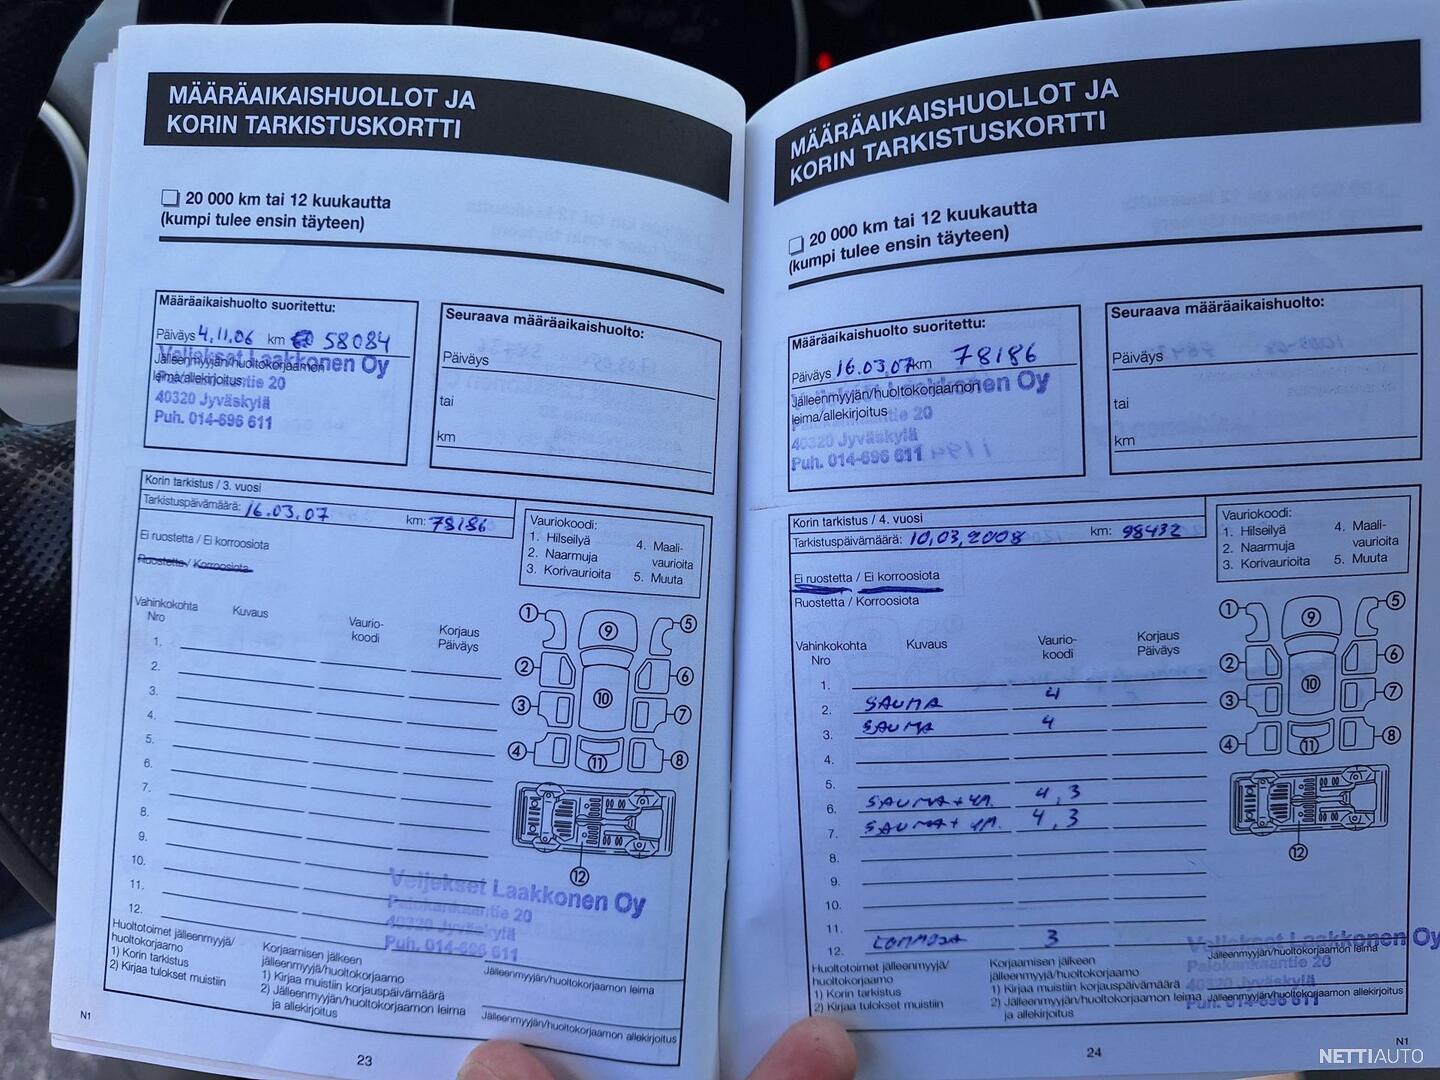 MÄÄRÄAIKAISHUOLLOT JA
KORIN TARKISTUSKORTTI
20 000 km tai 12 kuukautta
(kumpi tulee ensin täyteen)
Määräaikaishuolto suoritettu:
Päiväys 4.11.06 km 58084
Jälleenmyyjän/huoltokorjaamon
leima/allekirjoitus
Veljekset Laakkonen Oy
Palokankaantie 20
40320 Jyväskylä
Puh. 014-696 611
Seuraava määräaikaishuolto:
Päiväys
tai
km
Korin tarkistus / 3. vuosi
Tarkistuspäivämäärä: 16.03.07 km: 78186
Ei ruostetta / Ei korroosiota
Ruostetta / Korroosiota
Vauriokoodi:
1. Hilseilyä
2. Naarmuja
3. Korivaurioita
4. Maali-
vaurioita
5. Muuta
Vahinkokohta
Nro
Kuvaus
Vaurio-
koodi
Korjaus
Päiväys
1.
2.
3.
4.
5.
6.
7.
8.
9.
10.
11.
12.
1
2
3
4
5
6
7
8
9
10
11
12
Veljekset Laakkonen Oy
Palokankaantie 20
40320 Jyväskylä
Puh. 014-696 611
Huoltotoimet jälleenmyyjä/
huoltokorjaamo
1) Korin tarkistus
2) Kirjaa tulokset muistiin
Korjaamisen jälkeen
jälleenmyyjä/huoltokorjaamo
1) Kirjaa muistiin korjauspäivämäärä
2) Jälleenmyyjän/huoltokorjaamon leima
ja allekirjoitus
Jälleenmyyjän/huoltokorjaamon leima
Jälleenmyyjän/huoltokorjaamon allekirjoitus
N1
23
MÄÄRÄAIKAISHUOLLOT JA
KORIN TARKISTUSKORTTI
20 000 km tai 12 kuukautta
(kumpi tulee ensin täyteen)
Määräaikaishuolto suoritettu:
Päiväys 16.03.07 km 78186
Jälleenmyyjän/huoltokorjaamon
leima/allekirjoitus
Veljekset Laakkonen Oy
Palokankaantie 20
40320 Jyväskylä
Puh. 014-696 611
Seuraava määräaikaishuolto:
Päiväys
tai
km
Korin tarkistus / 4. vuosi
Tarkistuspäivämäärä: 10.03.2008 km: 98432
Ei ruostetta / Ei korroosiota
Ruostetta / Korroosiota
Vauriokoodi:
1. Hilseilyä
2. Naarmuja
3. Korivaurioita
4. Maali-
vaurioita
5. Muuta
Vahinkokohta
Nro
Kuvaus
Vaurio-
koodi
Korjaus
Päiväys
1.
2. SAUMA 4
3. SAUMA 4
4.
5.
6. SAUMA + YM. 4,3
7. SAUMA + YM. 4,3
8.
9.
10.
11.
12. LOMMOJA 3
1
2
3
4
5
6
7
8
9
10
11
12
Veljekset Laakkonen Oy
Palokankaantie 20
40320 Jyväskylä
Puh. 014-696 611
Huoltotoimet jälleenmyyjä/
huoltokorjaamo
1) Korin tarkistus
2) Kirjaa tulokset muistiin
Korjaamisen jälkeen
jälleenmyyjä/huoltokorjaamo
1) Kirjaa muistiin korjauspäivämäärä
2) Jälleenmyyjän/huoltokorjaamon leima
ja allekirjoitus
Jälleenmyyjän/huoltokorjaamon leima
Jälleenmyyjän/huoltokorjaamon allekirjoitus
24
N1
NETTIAUTO